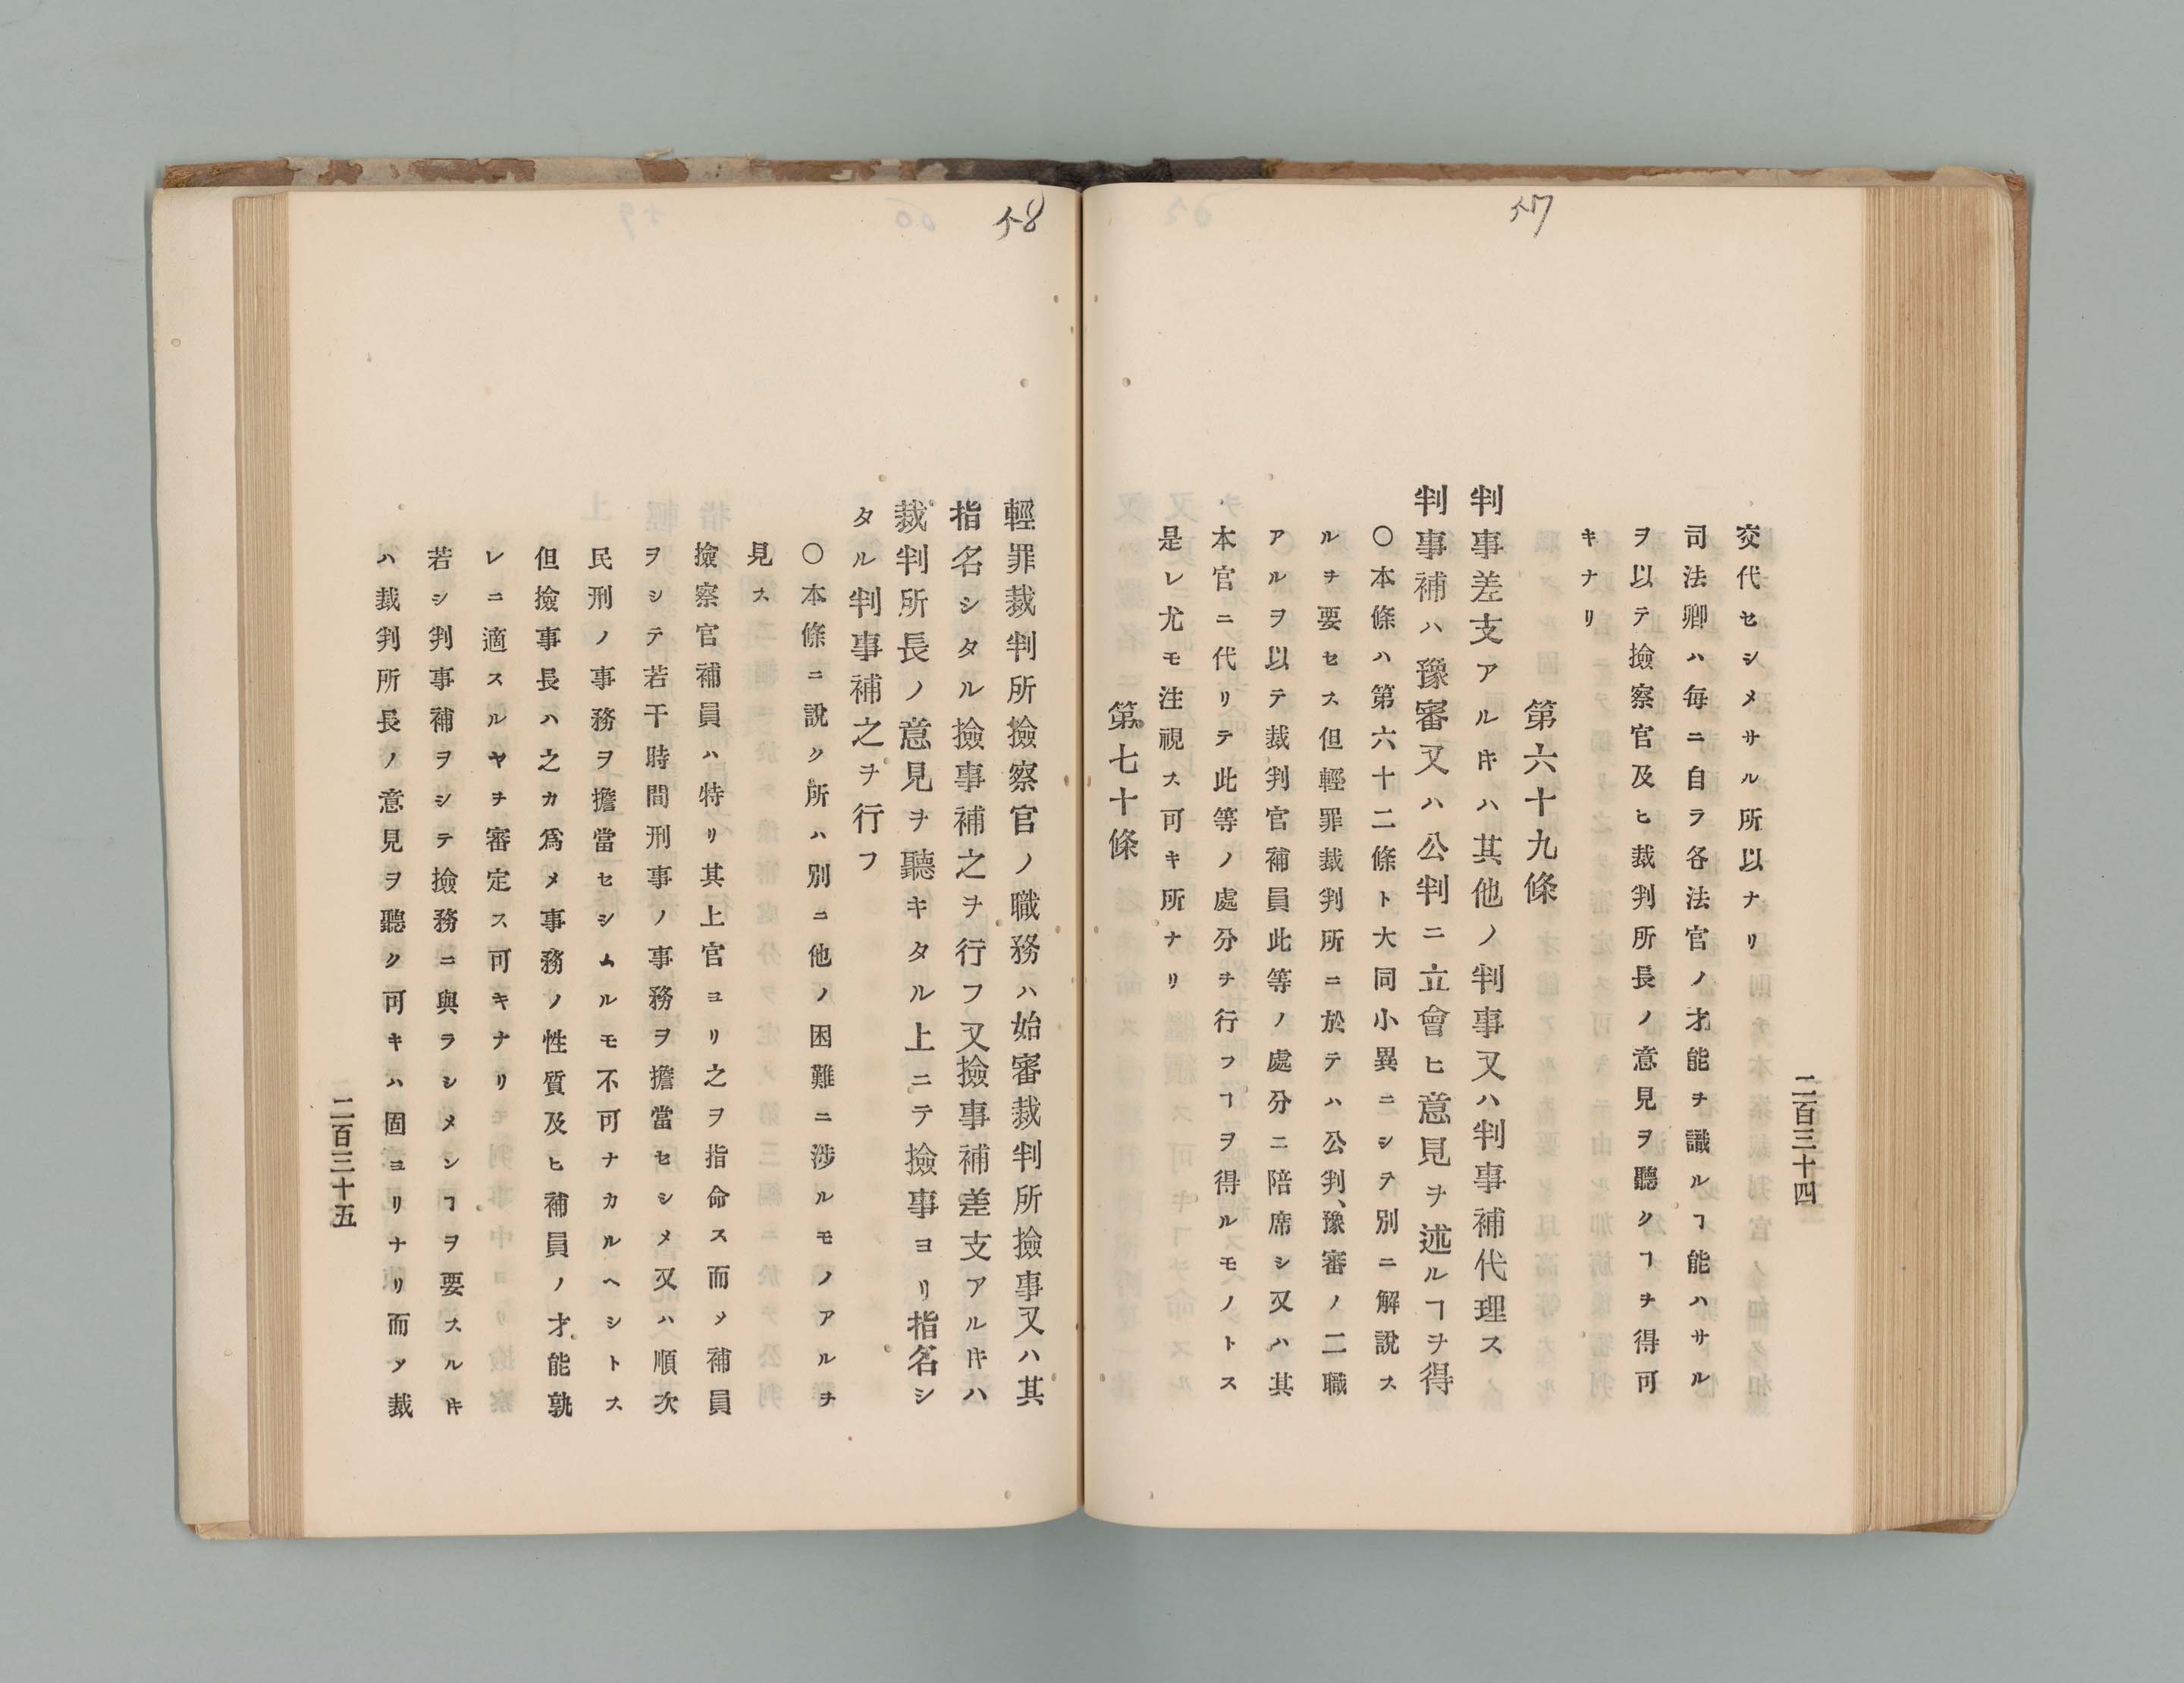 57
二百三十四
交代セシメサル所以ナリ
司法卿ハ毎ニ自ラ各法官ノ才能ヲ識ルヿ能ハサル
ヲ以テ撿察官及ヒ裁判所長ノ意見ヲ聽クヿヲ得可
キナリ
第六十九條
判事差支アルキハ其他ノ判事又ハ判事補代理ス
判事補ハ豫審又ハ公判ニ立會ヒ意見ヲ述ルヿヲ得
〇本條ハ第六十二條ト大同小異ニシテ別ニ解說ス
ルヲ要セス但輕罪裁判所ニ於テハ公判、豫審ノ二職
アルヲ以テ裁判官補員此等ノ處分ニ陪席シ又ハ其
本官ニ代リテ此等ノ處分ヲ行フヿヲ得ルモノトス
是レ尤モ注視ス可キ所ナリ
第七十條
58
輕罪裁判所撿察官ノ職務ハ始審裁判所撿事又ハ其
指名シタル撿事補之ヲ行フ又撿事補差支アルキハ
裁判所長ノ意見ヲ聽キタル上ニテ撿事ヨリ指名シ
タル判事補之ヲ行フ
〇本條ニ說ク所ハ別ニ他ノ困難ニ涉ルモノアルヲ
見ス
撿察官補員ハ特リ其上官ヨリ之ヲ指命ス而メ補員
ヲシテ若干時間刑事ノ事務ヲ擔當セシメ又ハ順次
民刑ノ事務ヲ擔當セシムルモ不可ナカルヘシトス
但撿事長ハ之カ爲メ事務ノ性質及ヒ補員ノ才能孰
レニ適スルヤヲ審定ス可キナリ
若シ判事補ヲシテ撿務ニ與ラシメンヿヲ要スルキ
ハ裁判所長ノ意見ヲ聽ク可キハ固ヨリナリ而メ裁
二百三十五